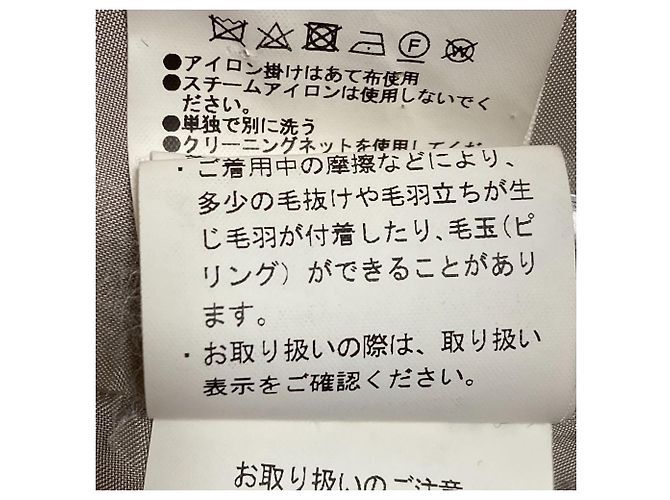 ●アイロン掛けはあて布使用
●スチームアイロンは使用しないでく
ださい。
●単独で別に洗う
●クリーニングネットを使用してくだ
・ご着用中の摩擦などにより、
多少の毛抜けや毛羽立ちが生
じ毛羽が付着したり、毛玉(ピ
リング)ができることがあり
ます。
・お取り扱いの際は、取り扱い
表示をご確認ください。
お取り扱いのご注意